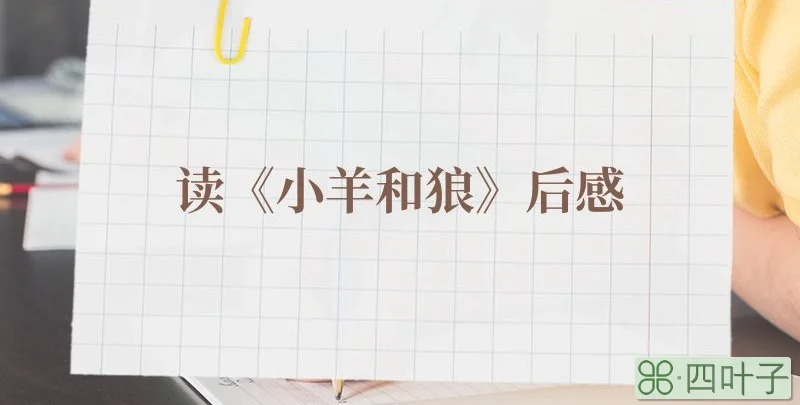 读《小羊和狼》后感
四叶子